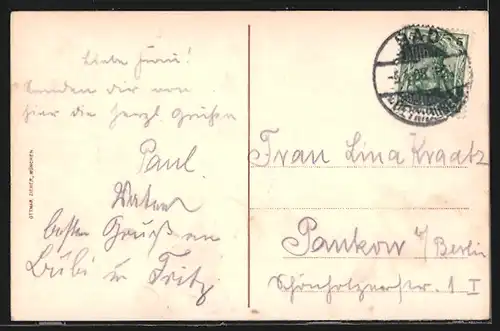 Liebe
Senden dir von
hier die herzl. Grüße
Paul
Vater
besten Gruß an
Bubi u Fritz
OTTMAR ZIEHER, MÜNCHEN
BAD
Frau Lina Kraatz
Pankow b/Berlin
Schönholzerstr. 1 I